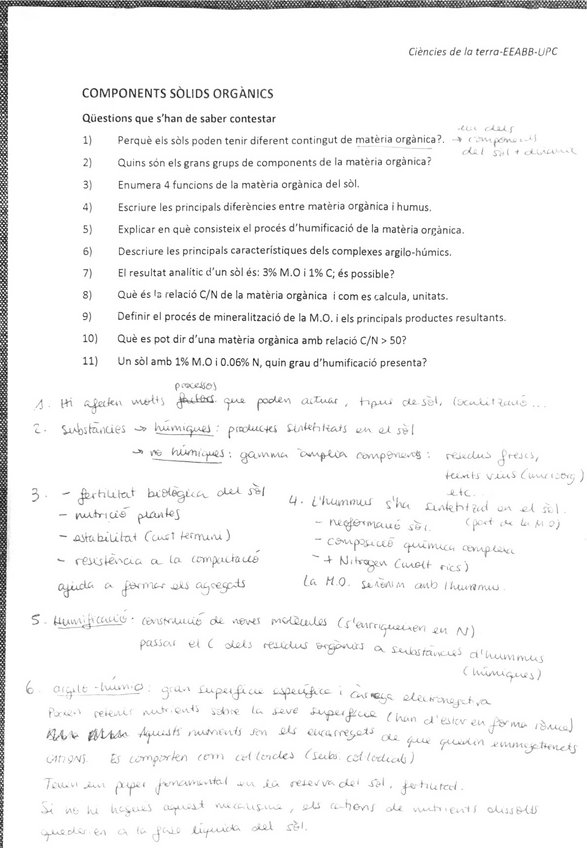 Ciències de la terra-EEABB-UPC
COMPONENTS SÒLIDS ORGÀNICS
Qüestions que s'han de saber contestar
1) Perquè els sòls poden tenir diferent contingut de matèria orgànica?. → un dels components del sòl + dinàmic
2) Quins són els grans grups de components de la matèria orgànica?
3) Enumera 4 funcions de la matèria orgànica del sòl.
4) Escriure les principals diferències entre matèria orgànica i humus.
5) Explicar en què consisteix el procés d'humificació de la matèria orgànica.
6) Descriure les principals característiques dels complexes argilo-húmics.
7) El resultat analític d'un sòl és: 3% M.O i 1% C; és possible?
8) Què és la relació C/N de la matèria orgànica i com es calcula, unitats.
9) Definir el procés de mineralització de la M.O. i els principals productes resultants.
10) Què es pot dir d'una matèria orgànica amb relació C/N > 50?
11) Un sòl amb 1% M.O i 0.06% N, quin grau d'humificació presenta?
processos
1. Hi afecten molts factors que poden actuar, tipus de sòl, localització...
2. Substàncies → húmiques: productes sintetitzats en el sòl
→ no húmiques: gamma amplia components: residus frescs,
teixits vius (microorg)
etc...
3. - fertilitat biològica del sòl
- nutrició plantes
- estabilitat (curt termini)
- resistència a la compactació
ajuda a formar els agregats
4. L'hummus s'ha sintetitzat en el sòl.
- neoformació sòl. (part de la M.O)
- composició química complexa
- + Nitrogen (molt rics)
La M.O. amb l'hummus.
5. Humificació: construcció de noves molècules (s'enriqueixen en N)
passar el C dels residus orgànics a substàncies d'hummus
(húmiques)
6. argilo-húmic: gran superfície específica i càrrega electronegativa
Poden retenir nutrients sobre la seva superfície (han d'estar en forma iònica)
Aquests nutrients son els encarregats de que quedin emmagatzemats
CATIONS. Es comporten com col·loides (subs. col·loidals)
Tenen un paper fonamental en la reserva del sòl, fertilitat.
Si no hi hagués aquest mecanisme, els cations de nutrients dissolts
quedarien a la fase líquida del sòl.